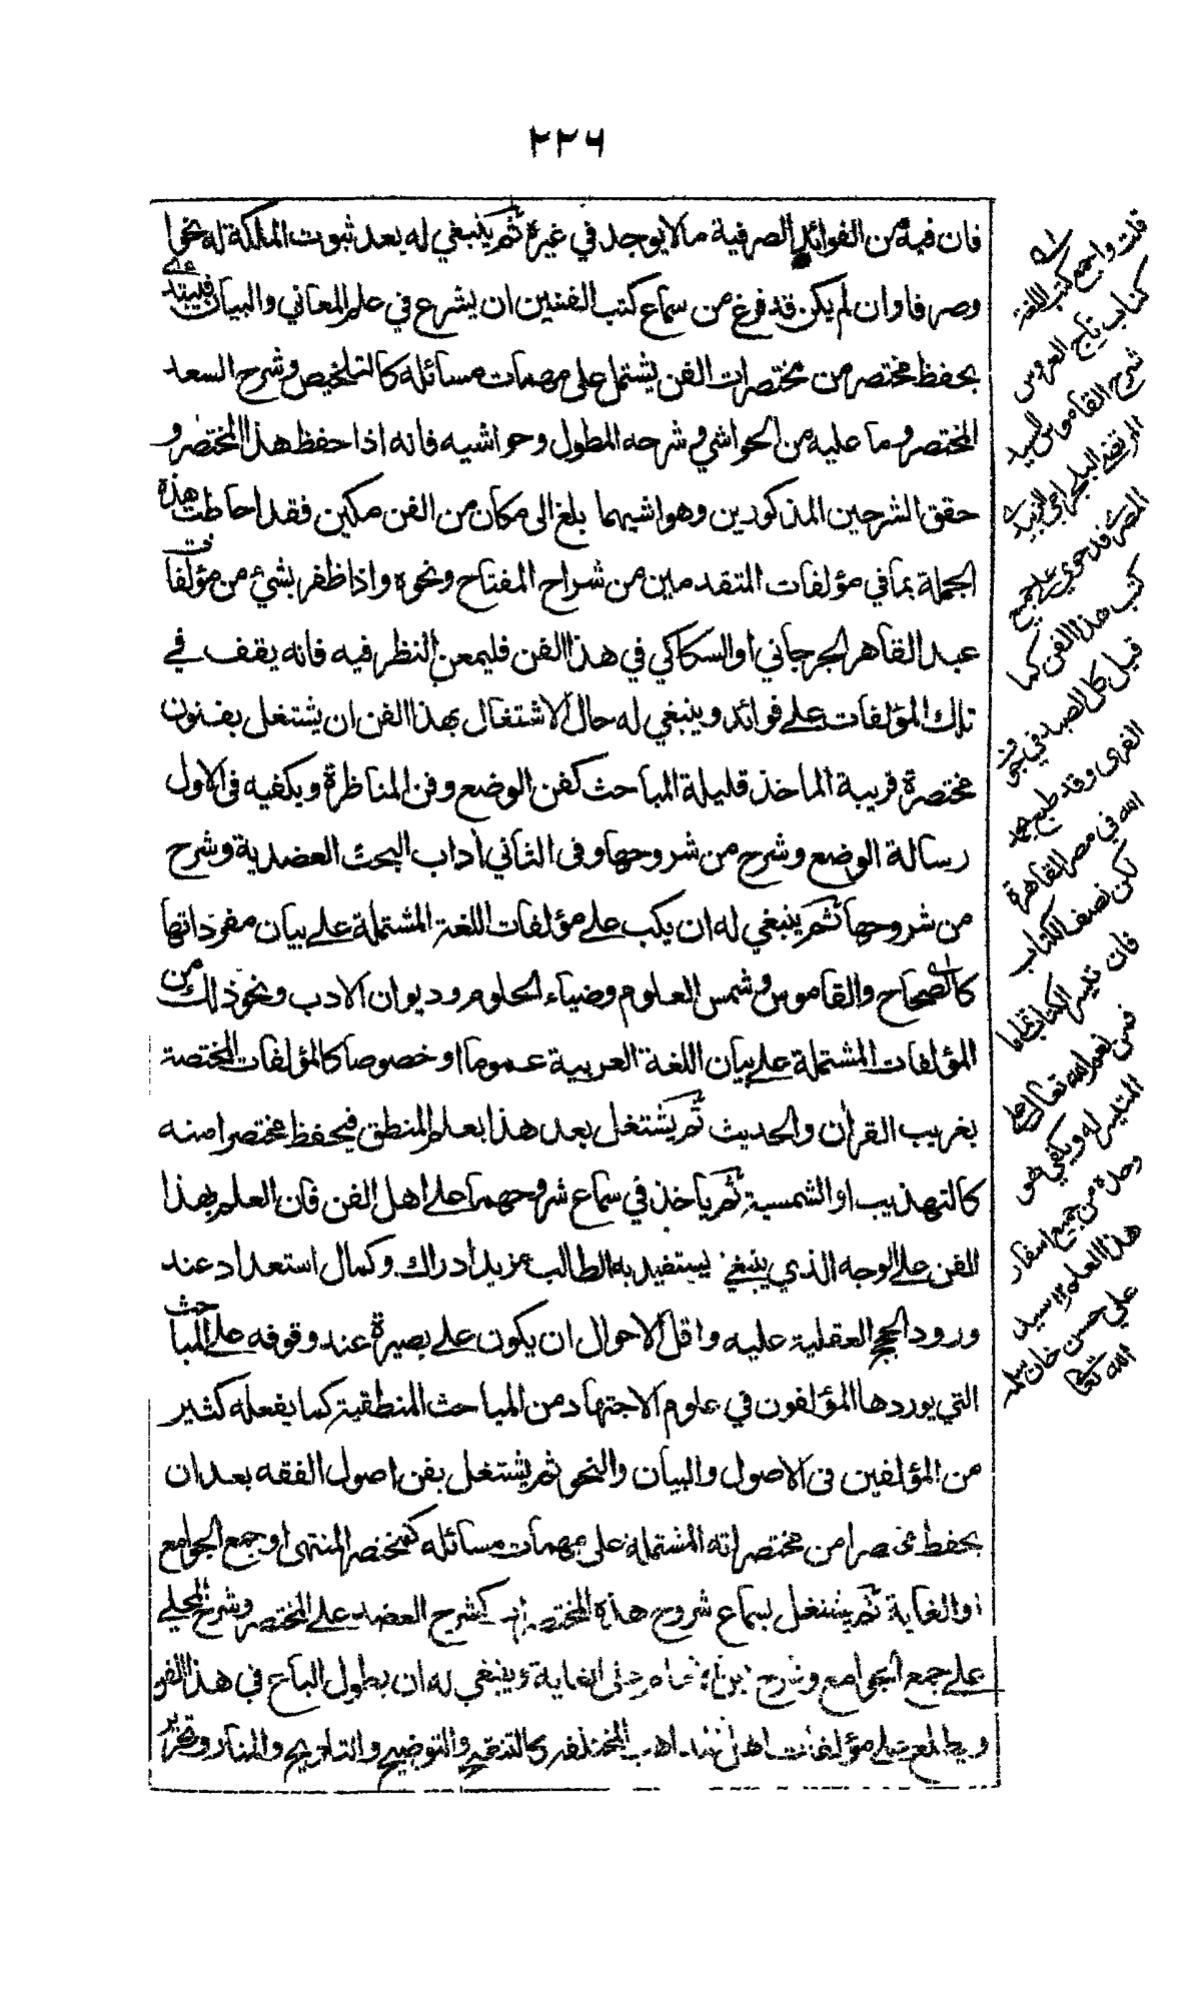 ٢٢٦
فان فيه من الفوائد الصرفية مالا يوجد في غيره ثم ينبغي له بعد ثبوت الملكة له نحوا
وصرفا وان لم يكن قد فرغ من سماع كتب الفنين ان يشرع في علم المعاني والبيان فليبتدء
بحفظ مختصر من مختصرات الفن يشتمل على مهمات مسائله كالتلخيص وشرح السعد
المختصر وما عليه من الحواشي وشرحه المطول وحواشيه فانه اذا حفظ هذا المختصر و
حقق الشرحين المذكورين وحواشيهما بلغ الى مكان من الفن مكين فقد احاطت هذه
الجملة بما في مؤلفات المتقدمين من شراح المفتاح ونحوه واذا ظفر بشئ من مؤلفات
عبد القاهر الجرجاني او السكاكي في هذا الفن فليمعن النظر فيه فانه يقف في
تلك المؤلفات على فوائد وينبغي له حال الاشتغال بهذا الفن ان يشتغل بفنون
مختصرة قريبة الماخذ قليلة المباحث كفن الوضع وفن المناظرة ويكفيه في الاول
رسالة الوضع وشرح من شروحها وفى الثاني آداب البحث العضدية وشرح
من شروحها ثم ينبغي له ان يكب على مؤلفات اللغة المشتملة على بيان مفرداتها
كالصحاح والقاموس وشمس العلوم وضياء الحلوم وديوان الادب ونحو ذلك من
المؤلفات المشتملة على بيان اللغة العربية عموما او خصوصا كالمؤلفات المختصة
بغريب القرآن والحديث ثم يشتغل بعد هذا بعلم المنطق فيحفظ مختصرا منه
كالتهذيب او الشمسية ثم ياخذ في سماع شروحهما على اهل الفن فان العلم بهذا
الفن على الوجه الذي ينبغي يستفيد به الطالب مزيد ادراك وكمال استعداد عند
ورود الحجج العقلية عليه واقل الاحوال ان يكون على بصيرة عند وقوفه على المباحث
التي يوردها المؤلفون في علوم الاجتهاد من المباحث المنطقية كما يفعله كثير
من المؤلفين فى الاصول والبيان والنحو ثم يشتغل بفن اصول الفقه بعد ان
يحفظ مختصرا من مختصراته المشتملة على مهمات مسائله كمختصر المنتهى او جمع الجوامع
او الغاية ثم يشتغل بسماع شروح هذه المختصرات كشرح العضد على المختصر وشرح المحلي
على جمع الجوامع وشرح ابن الامام على الغاية وينبغي له ان يطول الباع في هذا الفن
ويطلع على مؤلفات اهل المذاهب المختلفة كالتنقيح والتوضيح والتلويح والمنار وتحرير
قلت واجمع كتب اللغة
كتاب تاج العروس
شرح القاموس للسيد
المرتضى البلجرامي الزبيدي
المصري قد حوى على جميع
كتب هذا الفن كما
قيل كل الصيد في جوف
الفرى وقد طبع بحمد
الله في مصر القاهرة
لكن نصف الكتاب
فان تيسر الكتاب تماما
فمن نعم الله تعالى على
المتيسر له ويكفي هو
وحده من جميع اسفار
هذا العلم ١٢ سيد
علي حسن خان سلمه
الله تعالى